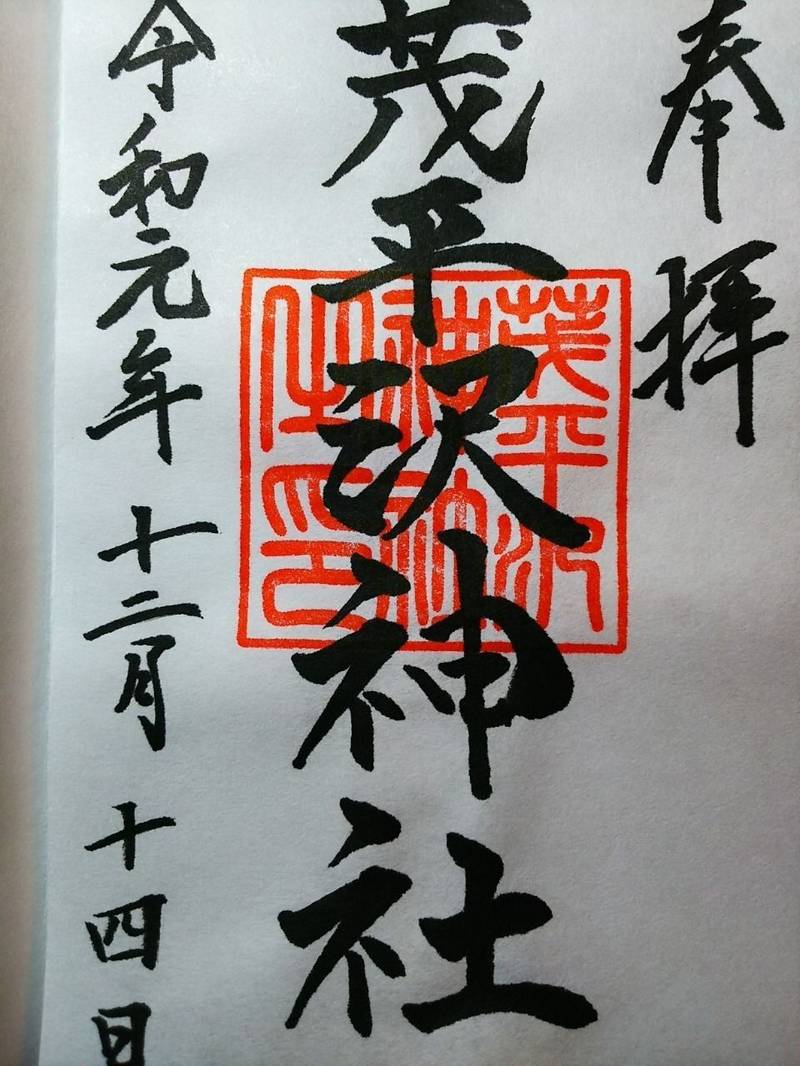 奉拝
茂平沢神社
茂平沢
神社
之印
令和元年十二月十四日